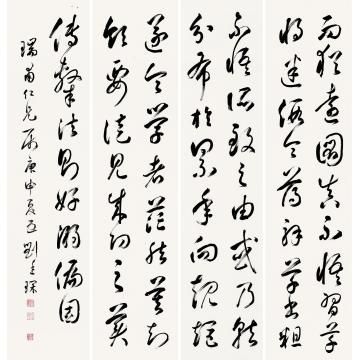 而猶遠圖真不悟習草
將迷假令薄解草書粗
不悟所致之由或乃就
分布於累年向規矩
遂令學者茫然莫知
領要徒見成功之美
傳隸法則好溺偏固
瑞甫仁兄屬庚申夏五劉嘉琛